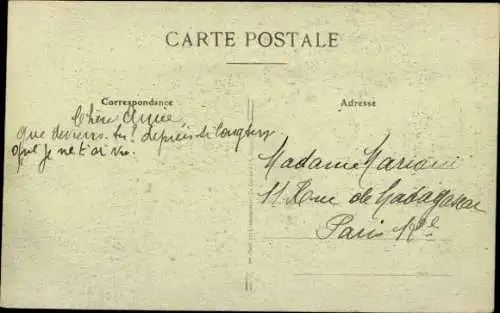 CARTE POSTALE
Correspondance
Adresse
Chère Amie
Que deviens-tu? depuis si longtemps
que je ne t'ai vu.
Madame Mariani
11 Rue de Madagascar
Paris 12e